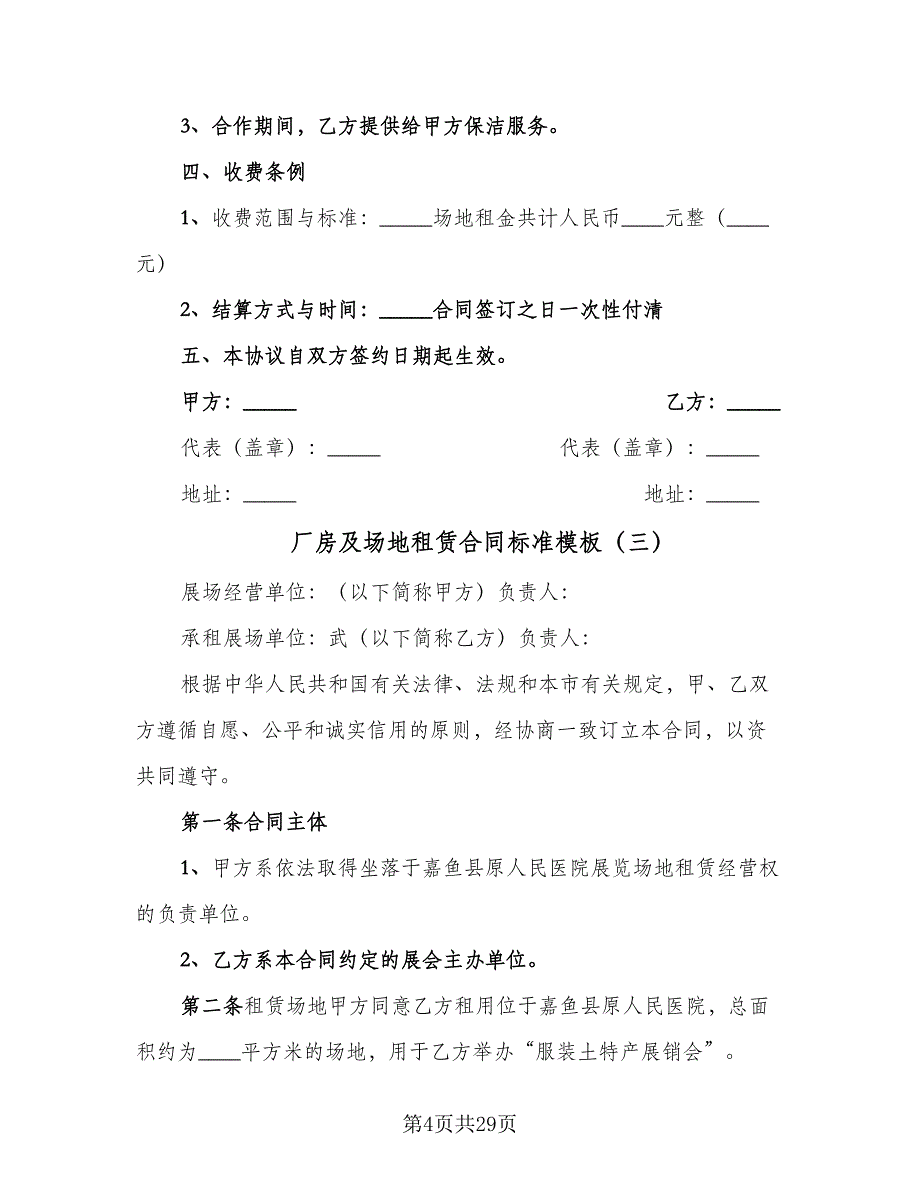 3、合作期间，乙方提供给甲方保洁服务。
四、收费条例
1、收费范围与标准：_____场地租金共计人民币____元整（____
元）
2、结算方式与时间：_____合同签订之日一次性付清
五、本协议自双方签约日期起生效。
甲方：_____ 乙方：_____
代表（盖章）：_____ 代表（盖章）：_____
地址：_____ 地址：_____
厂房及场地租赁合同标准模板（三）
展场经营单位：（以下简称甲方）负责人：
承租展场单位：武（以下简称乙方）负责人：
根据中华人民共和国有关法律、法规和本市有关规定，甲、乙双
方遵循自愿、公平和诚实信用的原则，经协商一致订立本合同，以资
共同遵守。
第一条合同主体
1、甲方系依法取得坐落于嘉鱼县原人民医院展览场地租赁经营权
的负责单位。
2、乙方系本合同约定的展会主办单位。
第二条租赁场地甲方同意乙方租用位于嘉鱼县原人民医院，总面
积约为____平方米的场地，用于乙方举办“服装土特产展销会”。
第4页共29页